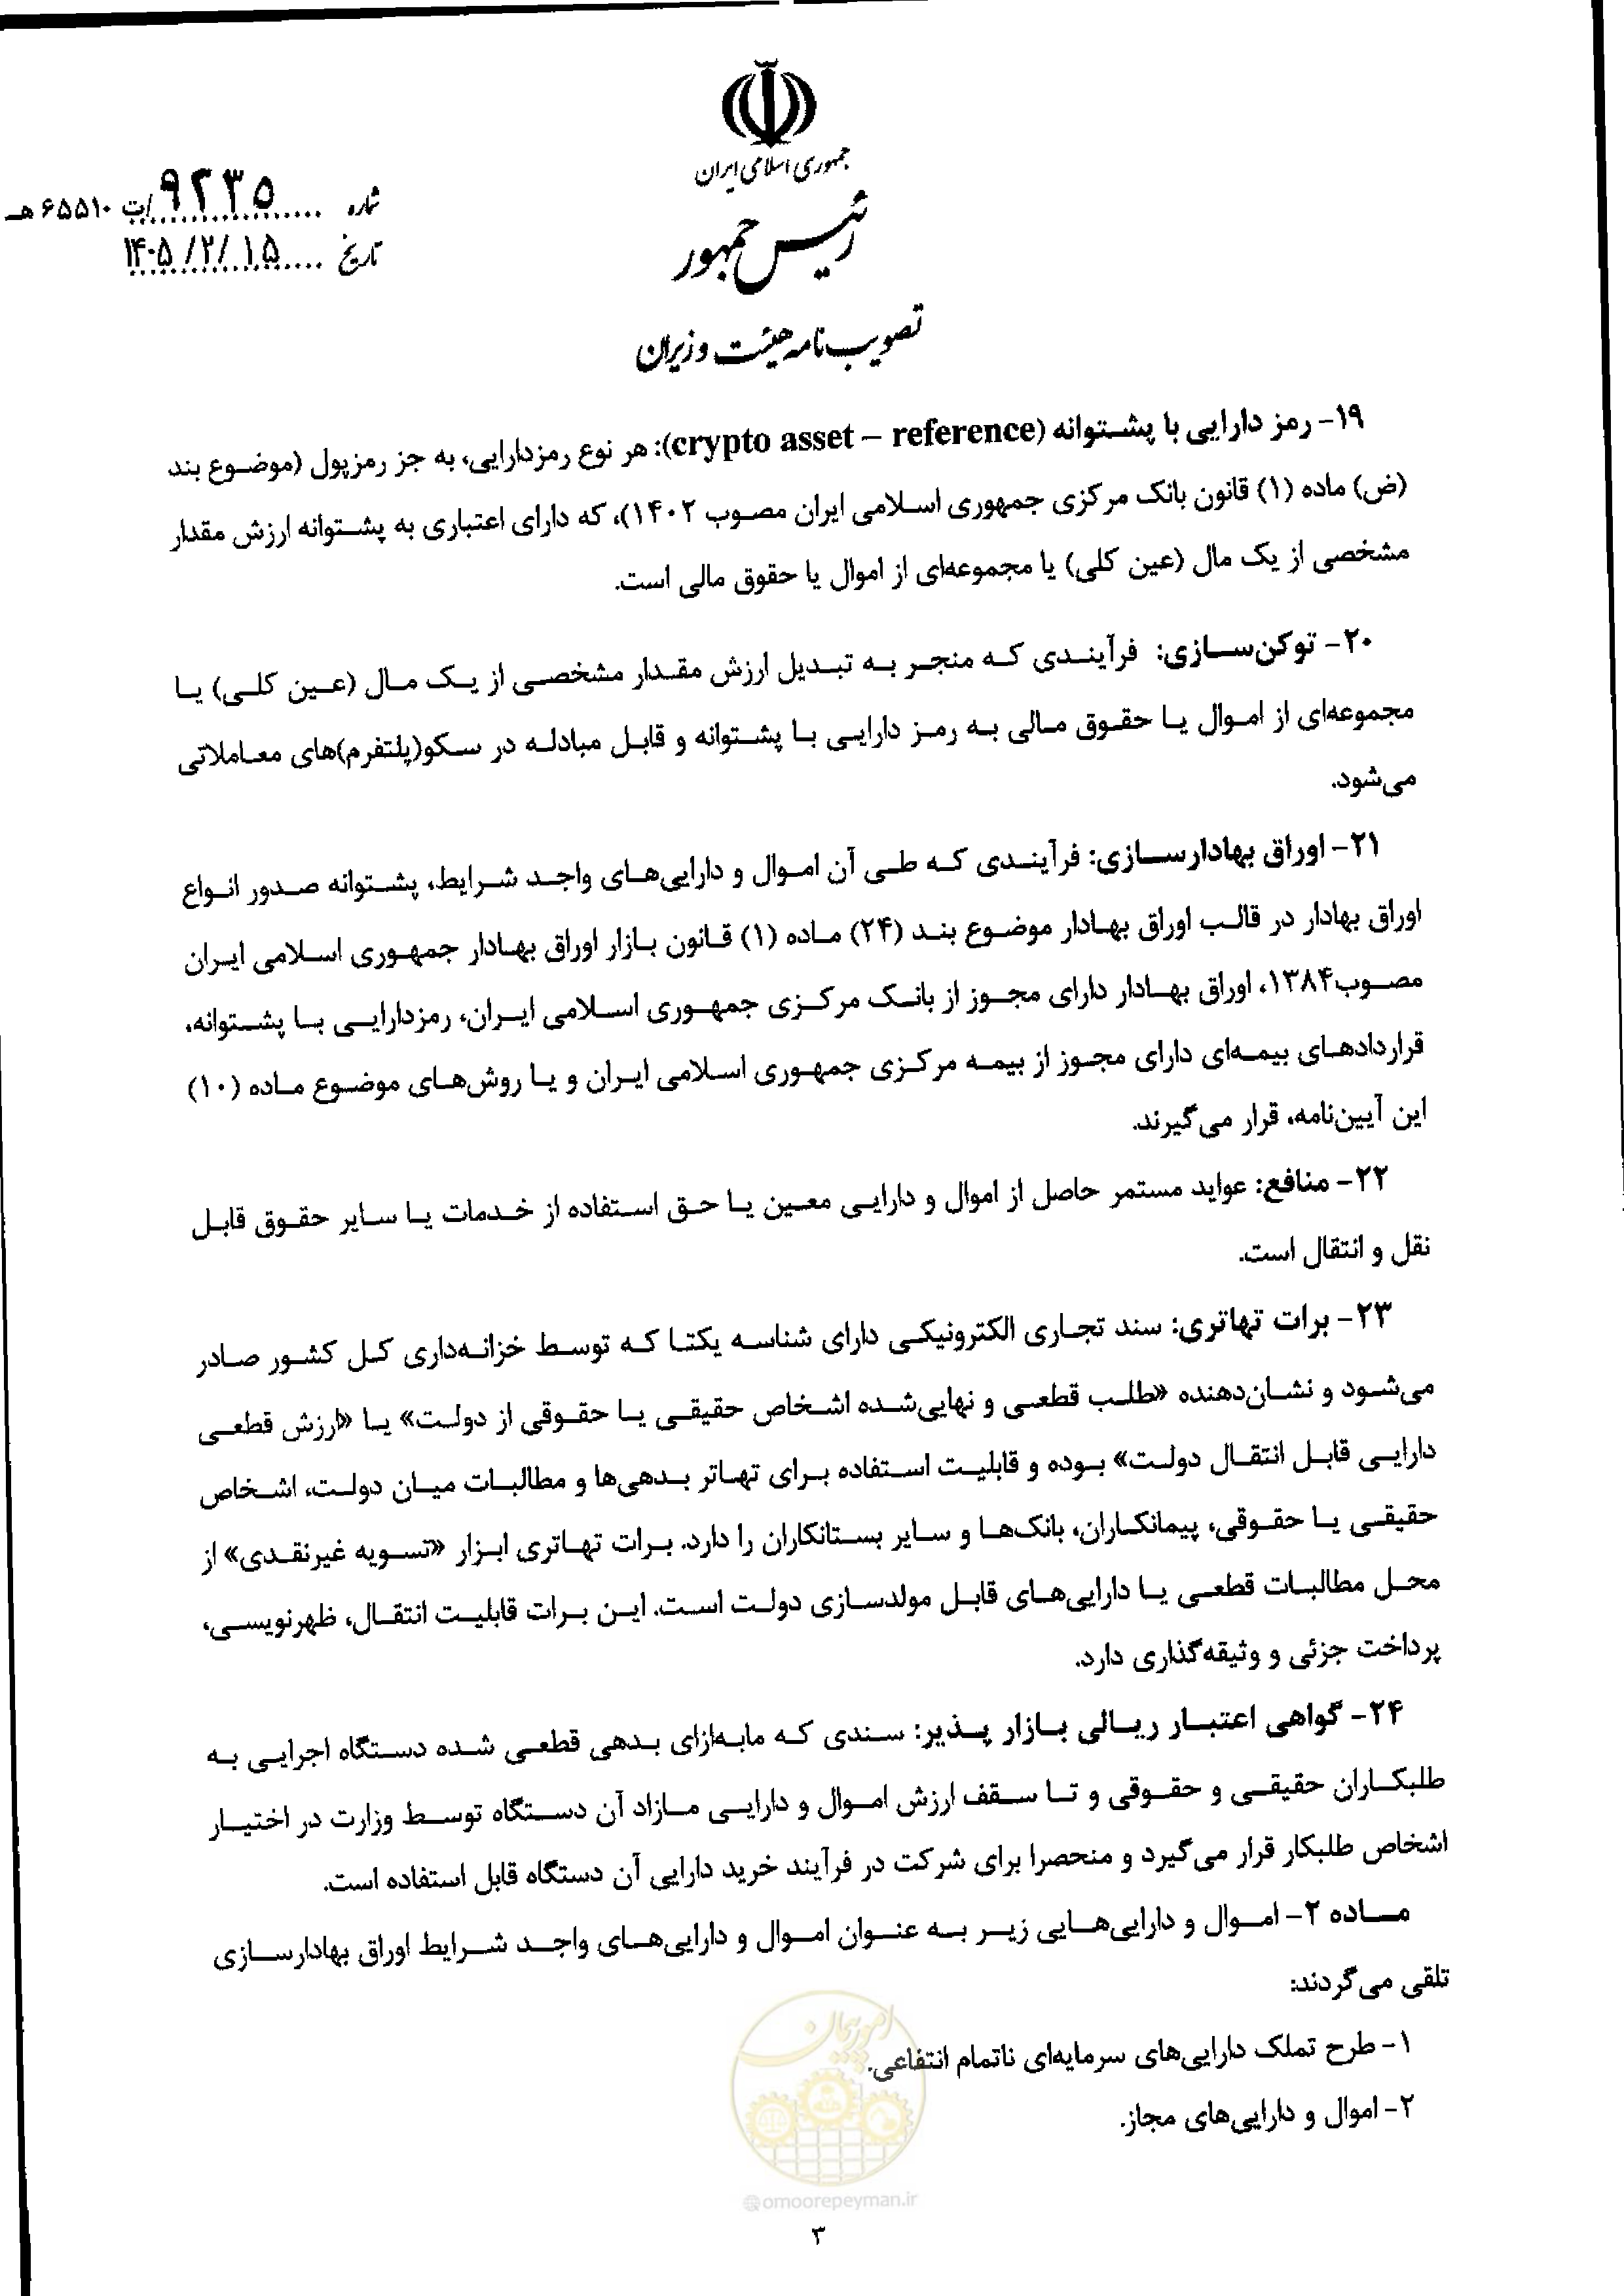 جمهوری اسلامی ایران
رئیس جمهور
تصویب نامه هیئت وزیران
شماره ۹۲۳۵/ت ۶۵۵۱۰ هـ
تاریخ ۱۴۰۵/۲/۱۵
۱۹- رمز دارایی با پشتوانه (crypto asset – reference): هر نوع رمزدارایی، به جز رمزپول (موضوع بند
(ض) ماده (۱) قانون بانک مرکزی جمهوری اسلامی ایران مصوب ۱۴۰۲)، که دارای اعتباری به پشتوانه ارزش مقدار
مشخصی از یک مال (عین کلی) یا مجموعه‌ای از اموال یا حقوق مالی است.
۲۰- توکن‌سازی: فرآیندی که منجر به تبدیل ارزش مقدار مشخصی از یک مال (عین کلی) یا
مجموعه‌ای از اموال یا حقوق مالی به رمز دارایی با پشتوانه و قابل مبادله در سکو(پلتفرم)های معاملاتی
می‌شود.
۲۱- اوراق بهادارسازی: فرآیندی که طی آن اموال و دارایی‌های واجد شرایط، پشتوانه صدور انواع
اوراق بهادار در قالب اوراق بهادار موضوع بند (۲۴) ماده (۱) قانون بازار اوراق بهادار جمهوری اسلامی ایران
مصوب۱۳۸۴، اوراق بهادار دارای مجوز از بانک مرکزی جمهوری اسلامی ایران، رمزدارایی با پشتوانه،
قراردادهای بیمه‌ای دارای مجوز از بیمه مرکزی جمهوری اسلامی ایران و یا روش‌های موضوع ماده (۱۰)
این آیین‌نامه، قرار می‌گیرند.
۲۲- منافع: عواید مستمر حاصل از اموال و دارایی معین یا حق استفاده از خدمات یا سایر حقوق قابل
نقل و انتقال است.
۲۳- برات تهاتری: سند تجاری الکترونیکی دارای شناسه یکتا که توسط خزانه‌داری کل کشور صادر
می‌شود و نشان‌دهنده «طلب قطعی و نهایی‌شده اشخاص حقیقی یا حقوقی از دولت» یا «ارزش قطعی
دارایی قابل انتقال دولت» بوده و قابلیت استفاده برای تهاتر بدهی‌ها و مطالبات میان دولت، اشخاص
حقیقی یا حقوقی، پیمانکاران، بانک‌ها و سایر بستانکاران را دارد. برات تهاتری ابزار «تسویه غیرنقدی» از
محل مطالبات قطعی یا دارایی‌های قابل مولدسازی دولت است. این برات قابلیت انتقال، ظهرنویسی،
پرداخت جزئی و وثیقه‌گذاری دارد.
۲۴- گواهی اعتبار ریالی بازار پذیر: سندی که مابه‌ازای بدهی قطعی شده دستگاه اجرایی به
طلبکاران حقیقی و حقوقی و تا سقف ارزش اموال و دارایی مازاد آن دستگاه توسط وزارت در اختیار
اشخاص طلبکار قرار می‌گیرد و منحصرا برای شرکت در فرآیند خرید دارایی آن دستگاه قابل استفاده است.
ماده ۲- اموال و دارایی‌هایی زیر به عنوان اموال و دارایی‌های واجد شرایط اوراق بهادارسازی
تلقی می‌گردند:
۱- طرح تملک دارایی‌های سرمایه‌ای ناتمام انتفاعی.
۲- اموال و دارایی‌های مجاز.
امور پیمان
@omoorepeyman.ir
۳